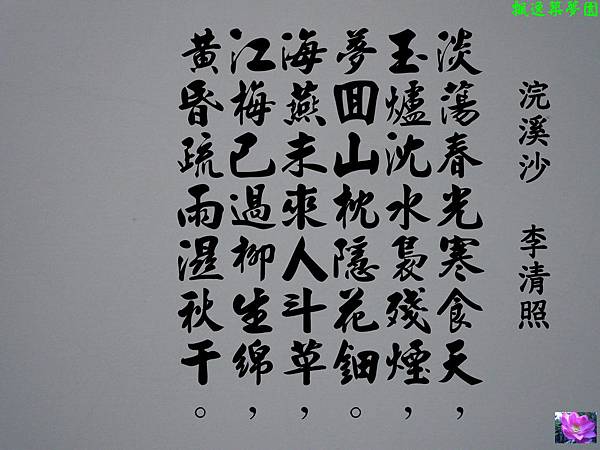 飄逸築夢園
浣溪沙　李清照
淡蕩春光寒食天，
玉爐沈水裊殘煙，
夢回山枕隱花鈿。
海燕未來人斗草，
江梅已過柳生綿，
黃昏疏雨濕秋千。